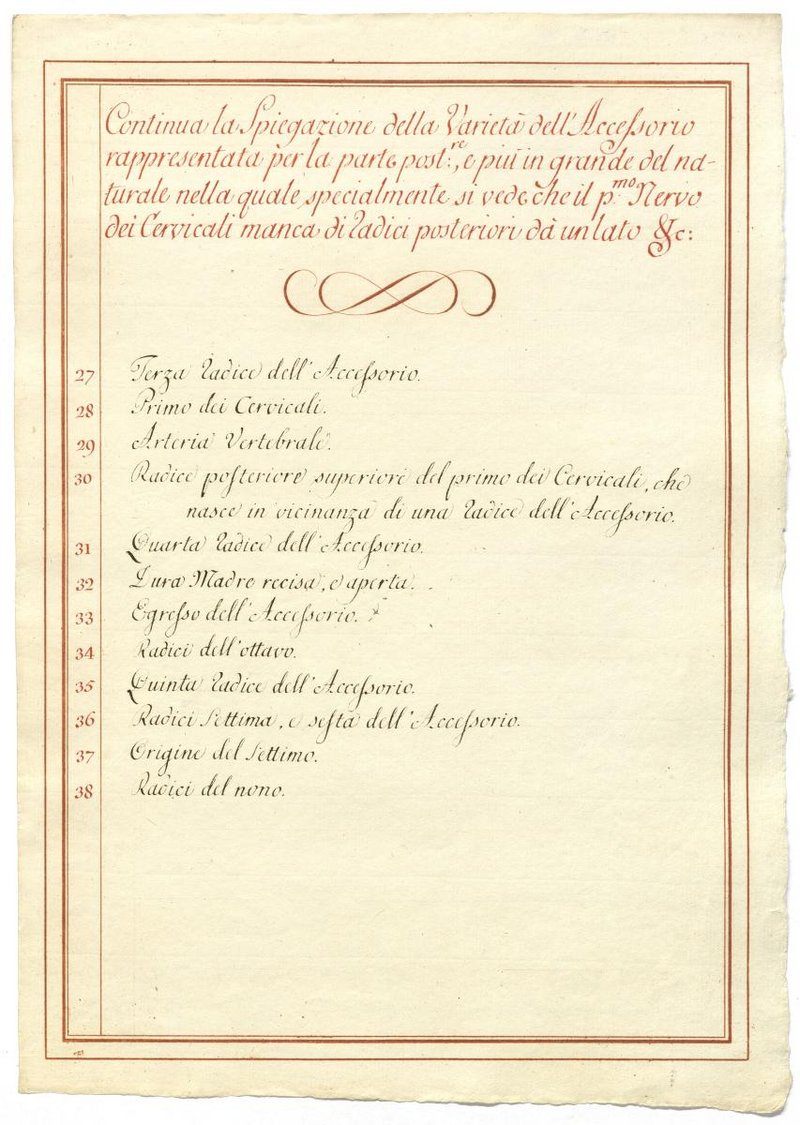 Continua la Spiegazione della Varietà dell'Accessorio
rappresentata per la parte post:re, e più in grande del na-
turale nella quale specialmente si vede che il p.mo Nervo
dei Cervicali manca di radici posteriori dà un lato &c:
27 Terza radice dell'Accessorio.
28 Primo dei Cervicali.
29 Arteria Vertebrale.
30 Radice posteriore superiore del primo dei Cervicali, che
nasce in vicinanza di una radice dell'Accessorio.
31 Quarta radice dell'Accessorio.
32 Dura Madre recisa, e aperta.
33 Egresso dell'Accessorio.
34 Radici dell'ottavo.
35 Quinta radice dell'Accessorio.
36 Radici settima, e sesta dell'Accessorio.
37 Origine del settimo.
38 Radici del nono.